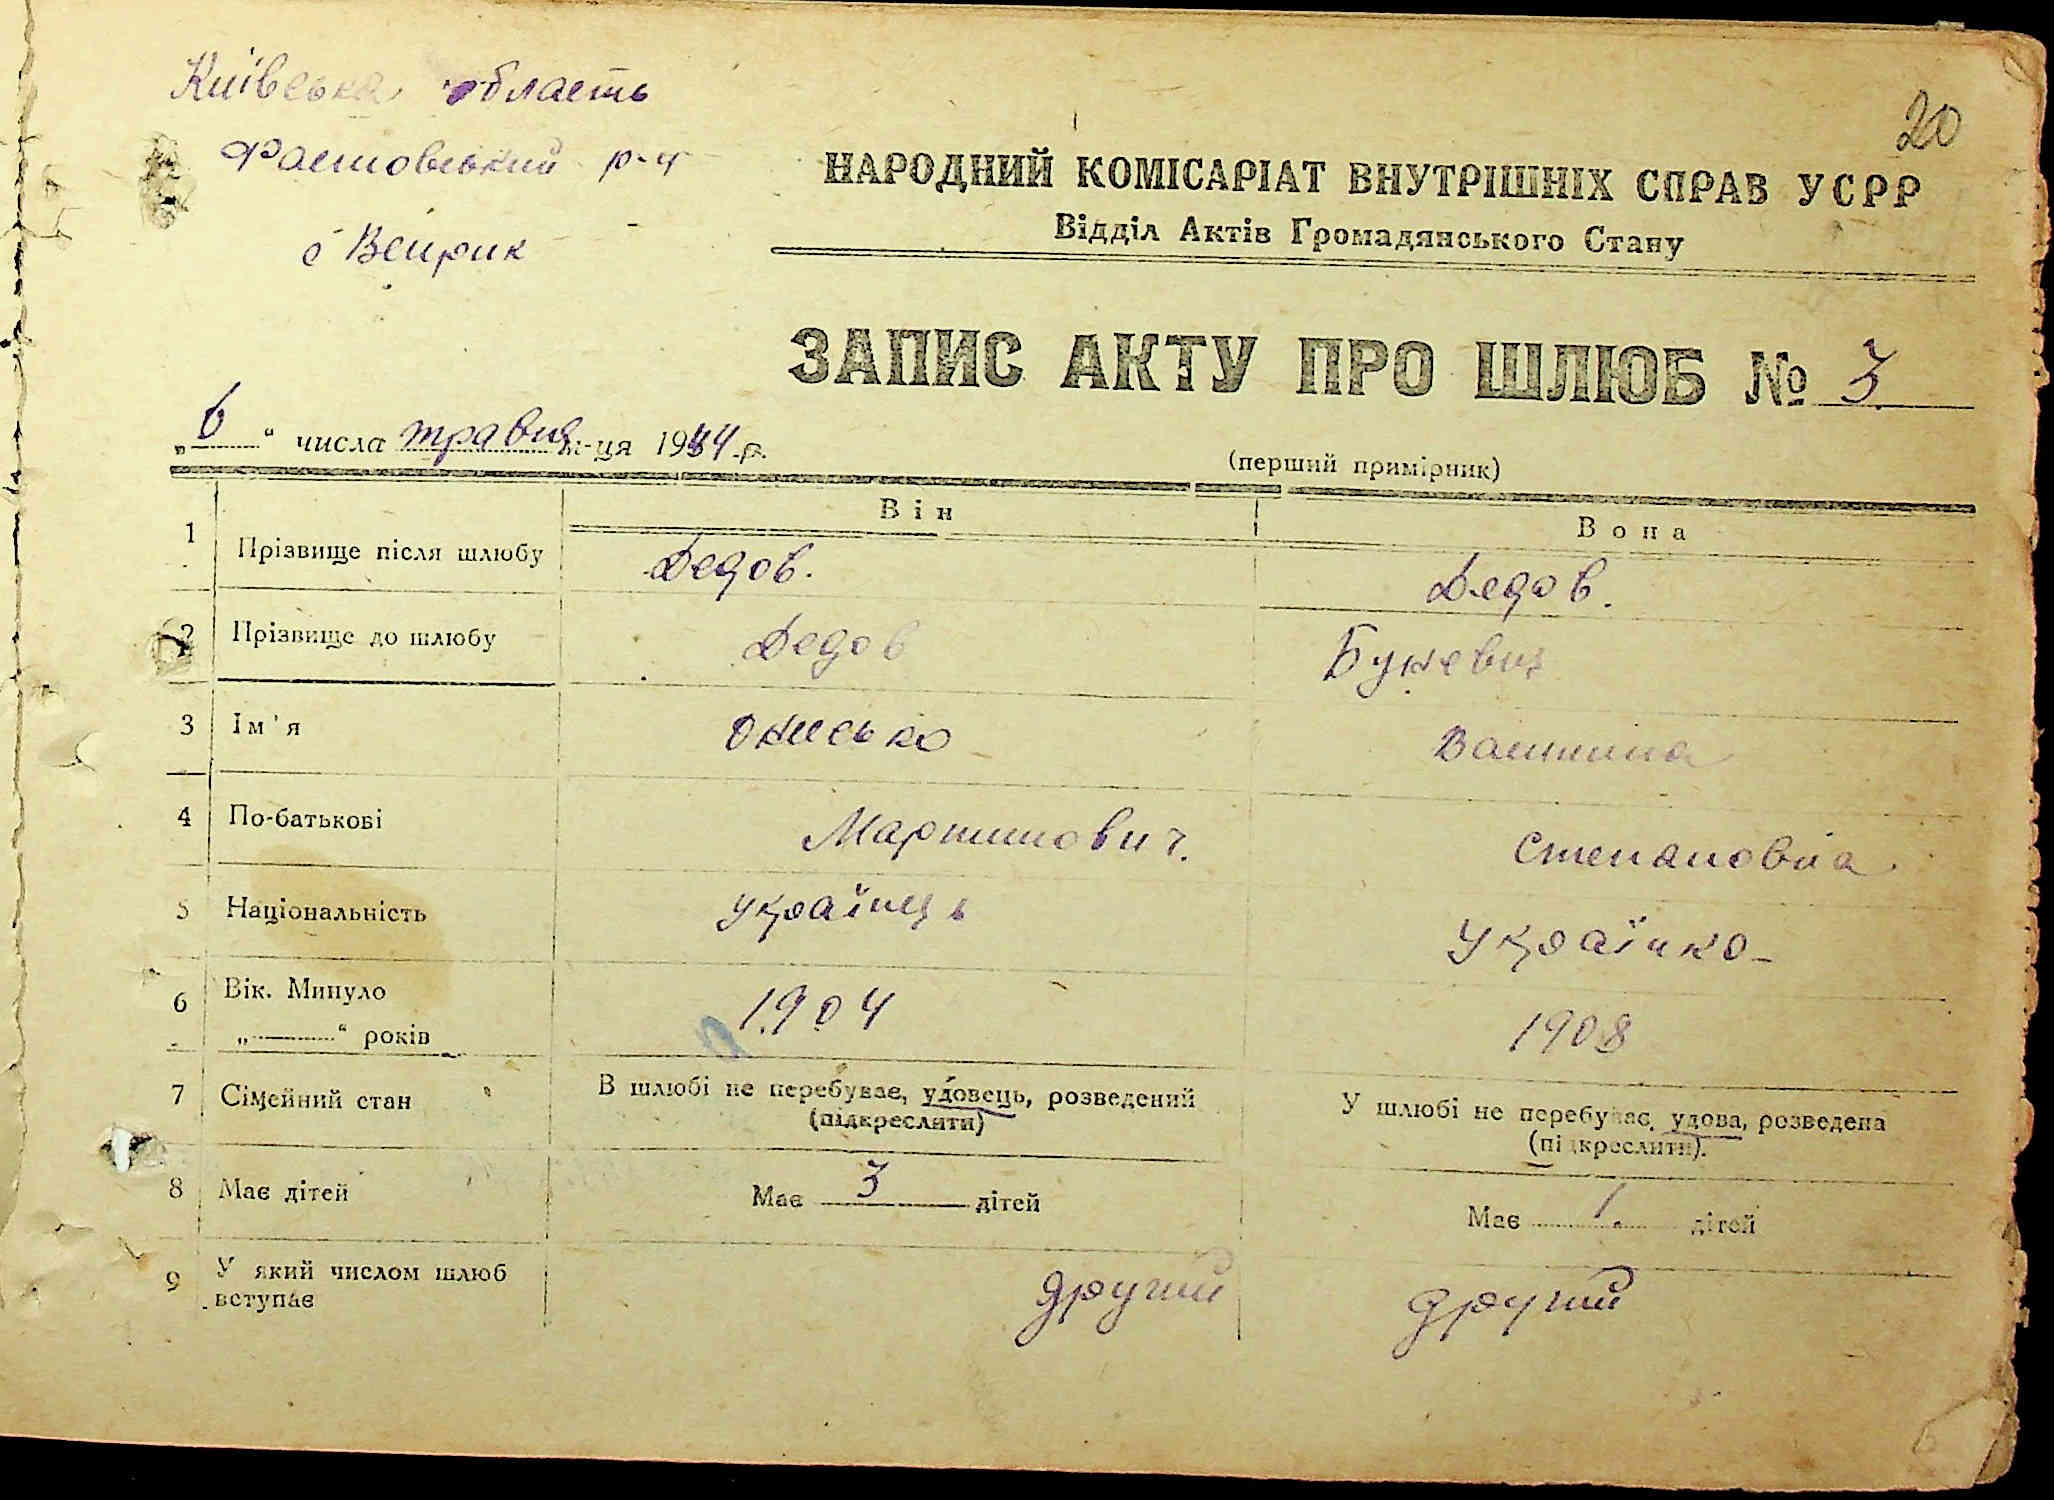 Київська область
20
Фастовський р-н
НАРОДНИЙ КОМІСАРІАТ ВНУТРІШНІХ СПРАВ УСРР
Відділ Актів Громадянського Стану
с Веприк
ЗАПИС АКТУ ПРО ШЛЮБ № 3
„6“ числа травня м-ця 1944 р.
(перший примірник)
Він
Вона
1 Прізвище після шлюбу Дедов. Дедов.
2 Прізвище до шлюбу Дедов
3 Ім'я Онисько
4 По-батькові Мартинович. Степановна
5 Національність українець Українко
6 Вік. Минуло 1904 1908
„ “ років
7 Сімейний стан В шлюбі не перебуває, удовець, розведений У шлюбі не перебуває, удова, розведена
(підкреслити) (підкреслити).
8 Має дітей Має 3 дітей Має 1. дітей
9 У який числом шлюб другий другий
вступає